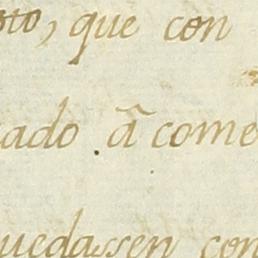 oto, que con
ado. â come
uedassen con